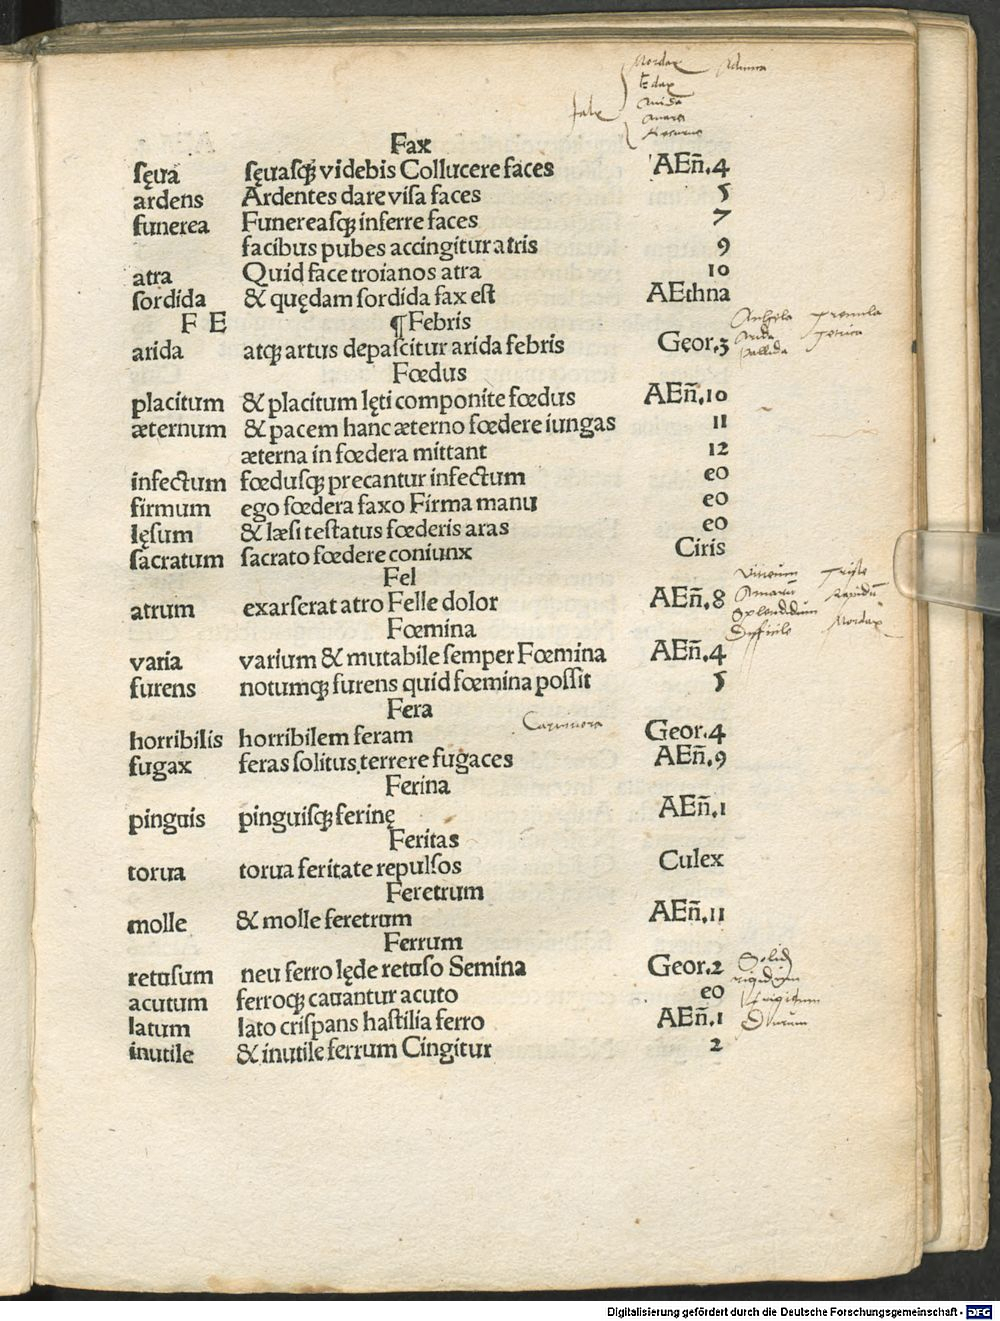 Mordax
Edax
Fax
sęua sęuasq; videbis Collucere faces AEñ.4
ardens Ardentes dare visa faces 5
funerea Funereasq; inferre faces 7
facibus pubes accingitur atris 9
atra Quid face troianos atra 10
sordida & quędam sordida fax est AEthna
F E ¶Febris
arida atq; artus depascitur arida febris Geor.3
Arida
pallida
Fœdus
placitum & placitum lęti componite fœdus AEñ.10
æternum & pacem hanc æterno fœdere iungas 11
æterna in fœdera mittant 12
infectum fœdusq; precantur infectum eo
firmum ego fœdera faxo Firma manu eo
lęsum & læsi testatus fœderis aras eo
sacratum sacrato fœdere coniunx Ciris
Fel
atrum exarserat atro Felle dolor AEñ.8
Viticum Triste
Amarū Rapidū
Splendidum Mordax
Difficile
Fœmina
varia varium & mutabile semper Fœmina AEñ.4
furens notumq; furens quid fœmina possit 5
Fera
Carnivora
horribilis horribilem feram Geor.4
fugax feras solitus terrere fugaces AEñ.9
Ferina
pinguis pinguisq; ferinę AEñ.1
Feritas
torua torua feritate repulsos Culex
Feretrum
molle & molle feretrum AEñ.11
Ferrum
retusum neu ferro lęde retuso Semina Geor.2
acutum ferroq; cauantur acuto eo
latum lato crispans hastilia ferro AEñ.1
inutile & inutile ferrum Cingitur 2
rigidum
Durum
Digitalisierung gefördert durch die Deutsche Forschungsgemeinschaft - DFG